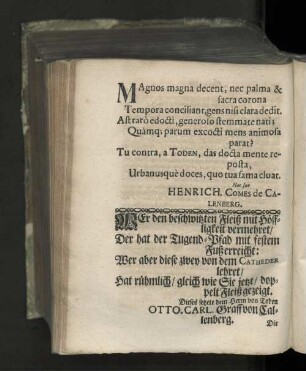 MAgnos magna decent, nec palma &
sacra corona
Tempora conciliant, gens nisi clara dedit.
Ast raro edocti, generoso stemmate nati;
Quàmq; parum excocti mens animosa
parat?
Tu contra, a TODEN, das docta mente re-
posta,
Urbanusquè doces, quo tua fama cluat.
HENRICH. COMES de CA-
LENBERG.
WEr den beschwitzten Fleiß mit Höf-
ligkeit vermehret/
Der hat der Tugend-Pfad mit festem
Fuß erreicht:
Wer aber diese zwey von dem CATHEDER
lehret/
Hat rühmlich/ gleich wie Sie jetzt/ dop-
pelt Fleiß gezeigt.
Dieses setzete dem Herrn von Toden
OTTO. CARL. Graff von Cal-
lenberg.
Die